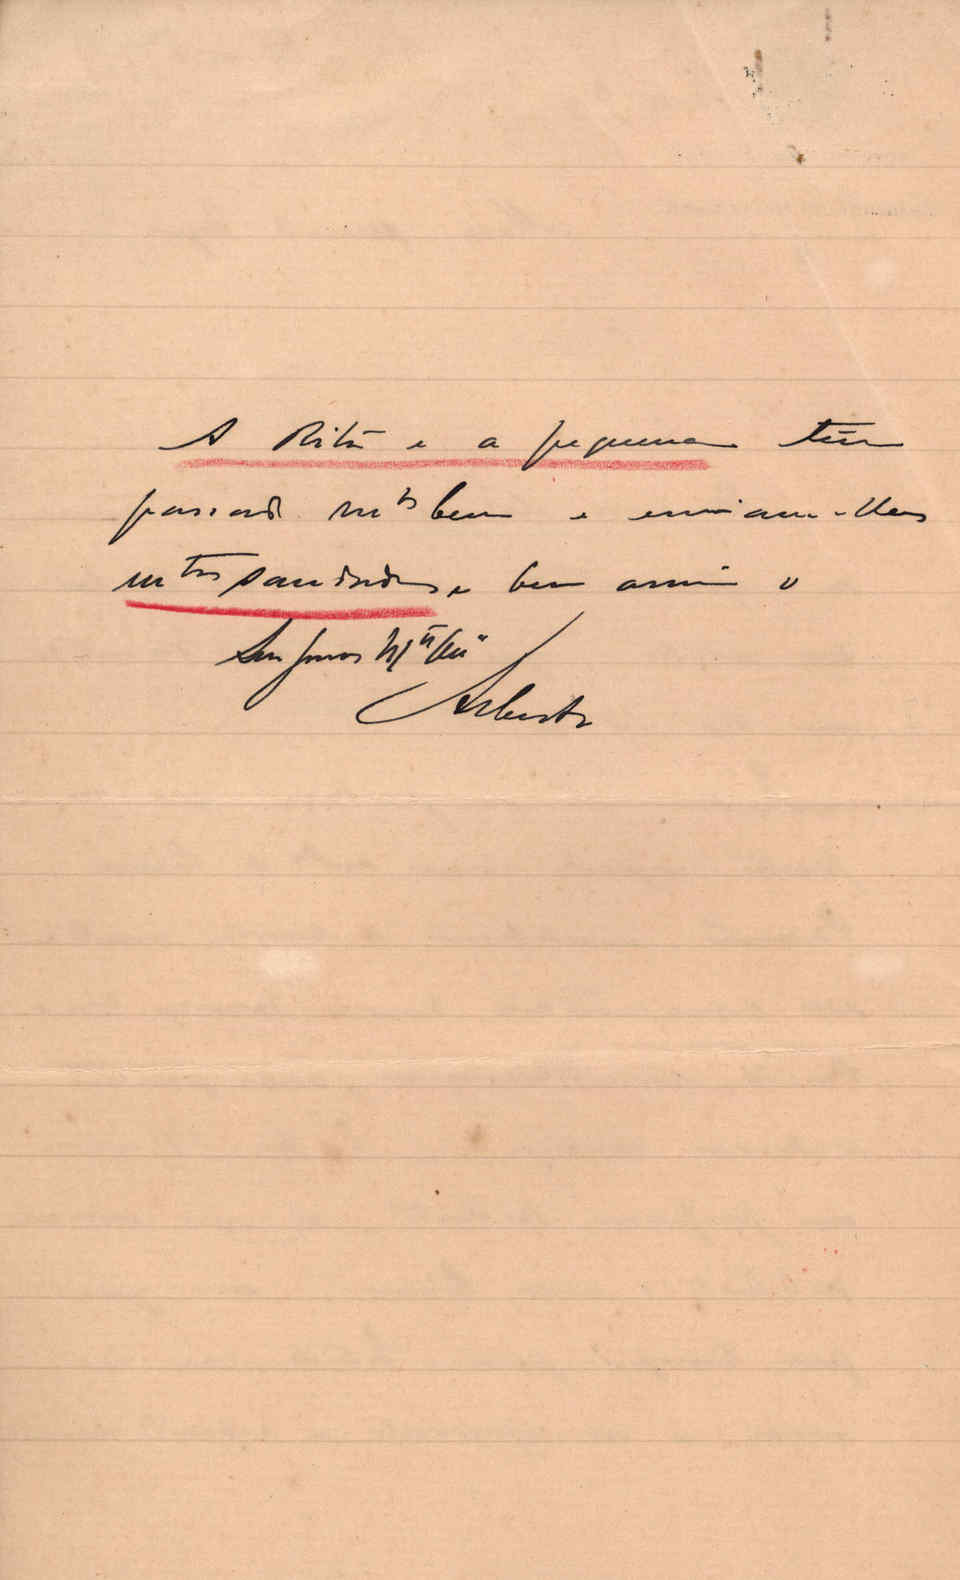 A Rita e a pequena têm
passado mtº bem e enviam-lhes
mtas saudades e bem assim o
Seu
Alberto